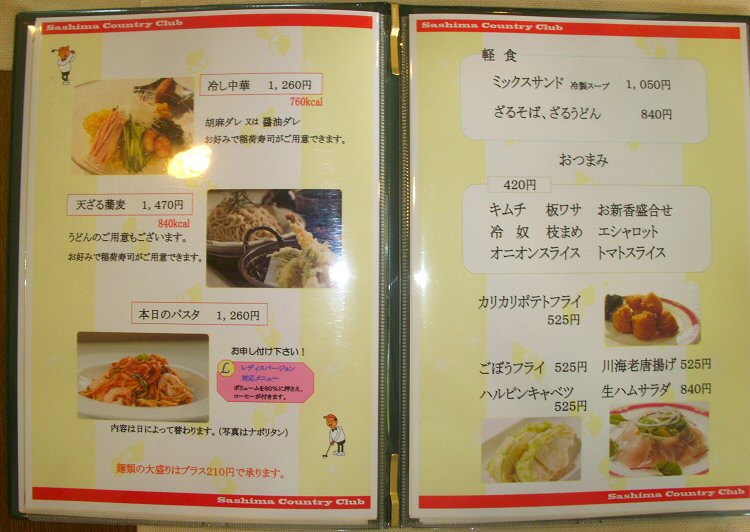 Sashima Country Club
冷し中華 1,260円
760kcal
胡麻ダレ 又は 醤油ダレ
お好みで稲荷寿司がご用意できます。
天ざる蕎麦 1,470円
840kcal
うどんのご用意もございます。
お好みで稲荷寿司がご用意できます。
本日のパスタ 1,260円
お申し付け下さい!
L レディスバージョン
対応メニュー
ボリュームを80%に押さえ、
コーヒーが付きます。
内容は日によって替わります。(写真はナポリタン)
麺類の大盛りはプラス210円で承ります。
Sashima Country Club
Sashima Country Club
軽食
ミックスサンド 冷製スープ 1,050円
ざるそば、ざるうどん 840円
おつまみ
420円
キムチ 板ワサ お新香盛合せ
冷奴 枝まめ エシャロット
オニオンスライス トマトスライス
カリカリポテトフライ
525円
ごぼうフライ 525円 川海老唐揚げ 525円
ハルピンキャベツ 生ハムサラダ 840円
525円
Sashima Country Club